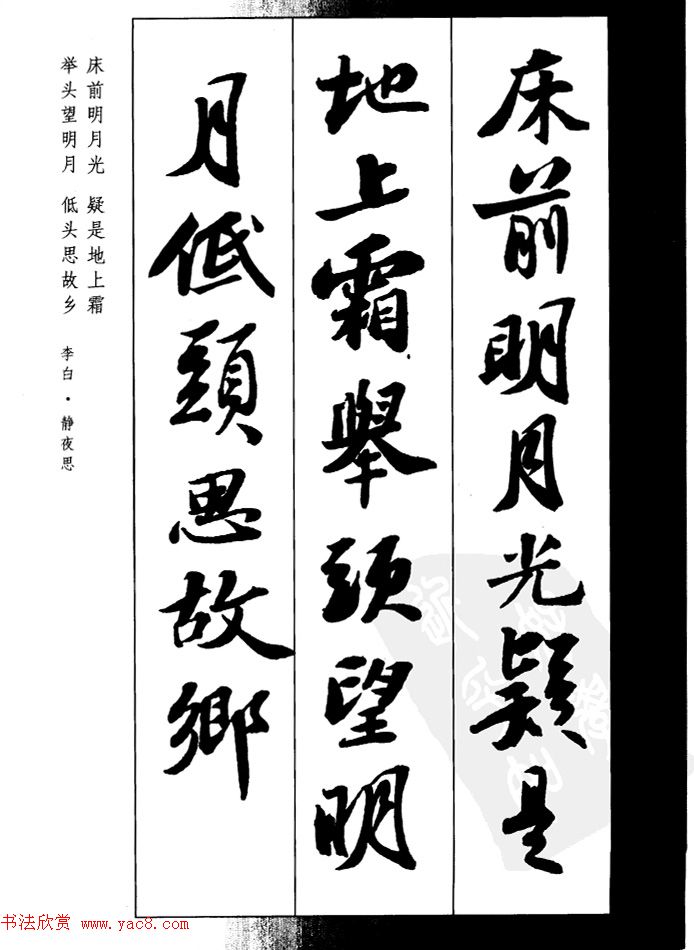 床前明月光疑是
地上霜舉頭望明
月低頭思故鄉
床前明月光　疑是地上霜
举头望明月　低头思故乡　李白·静夜思
书法欣赏 www.yac8.com